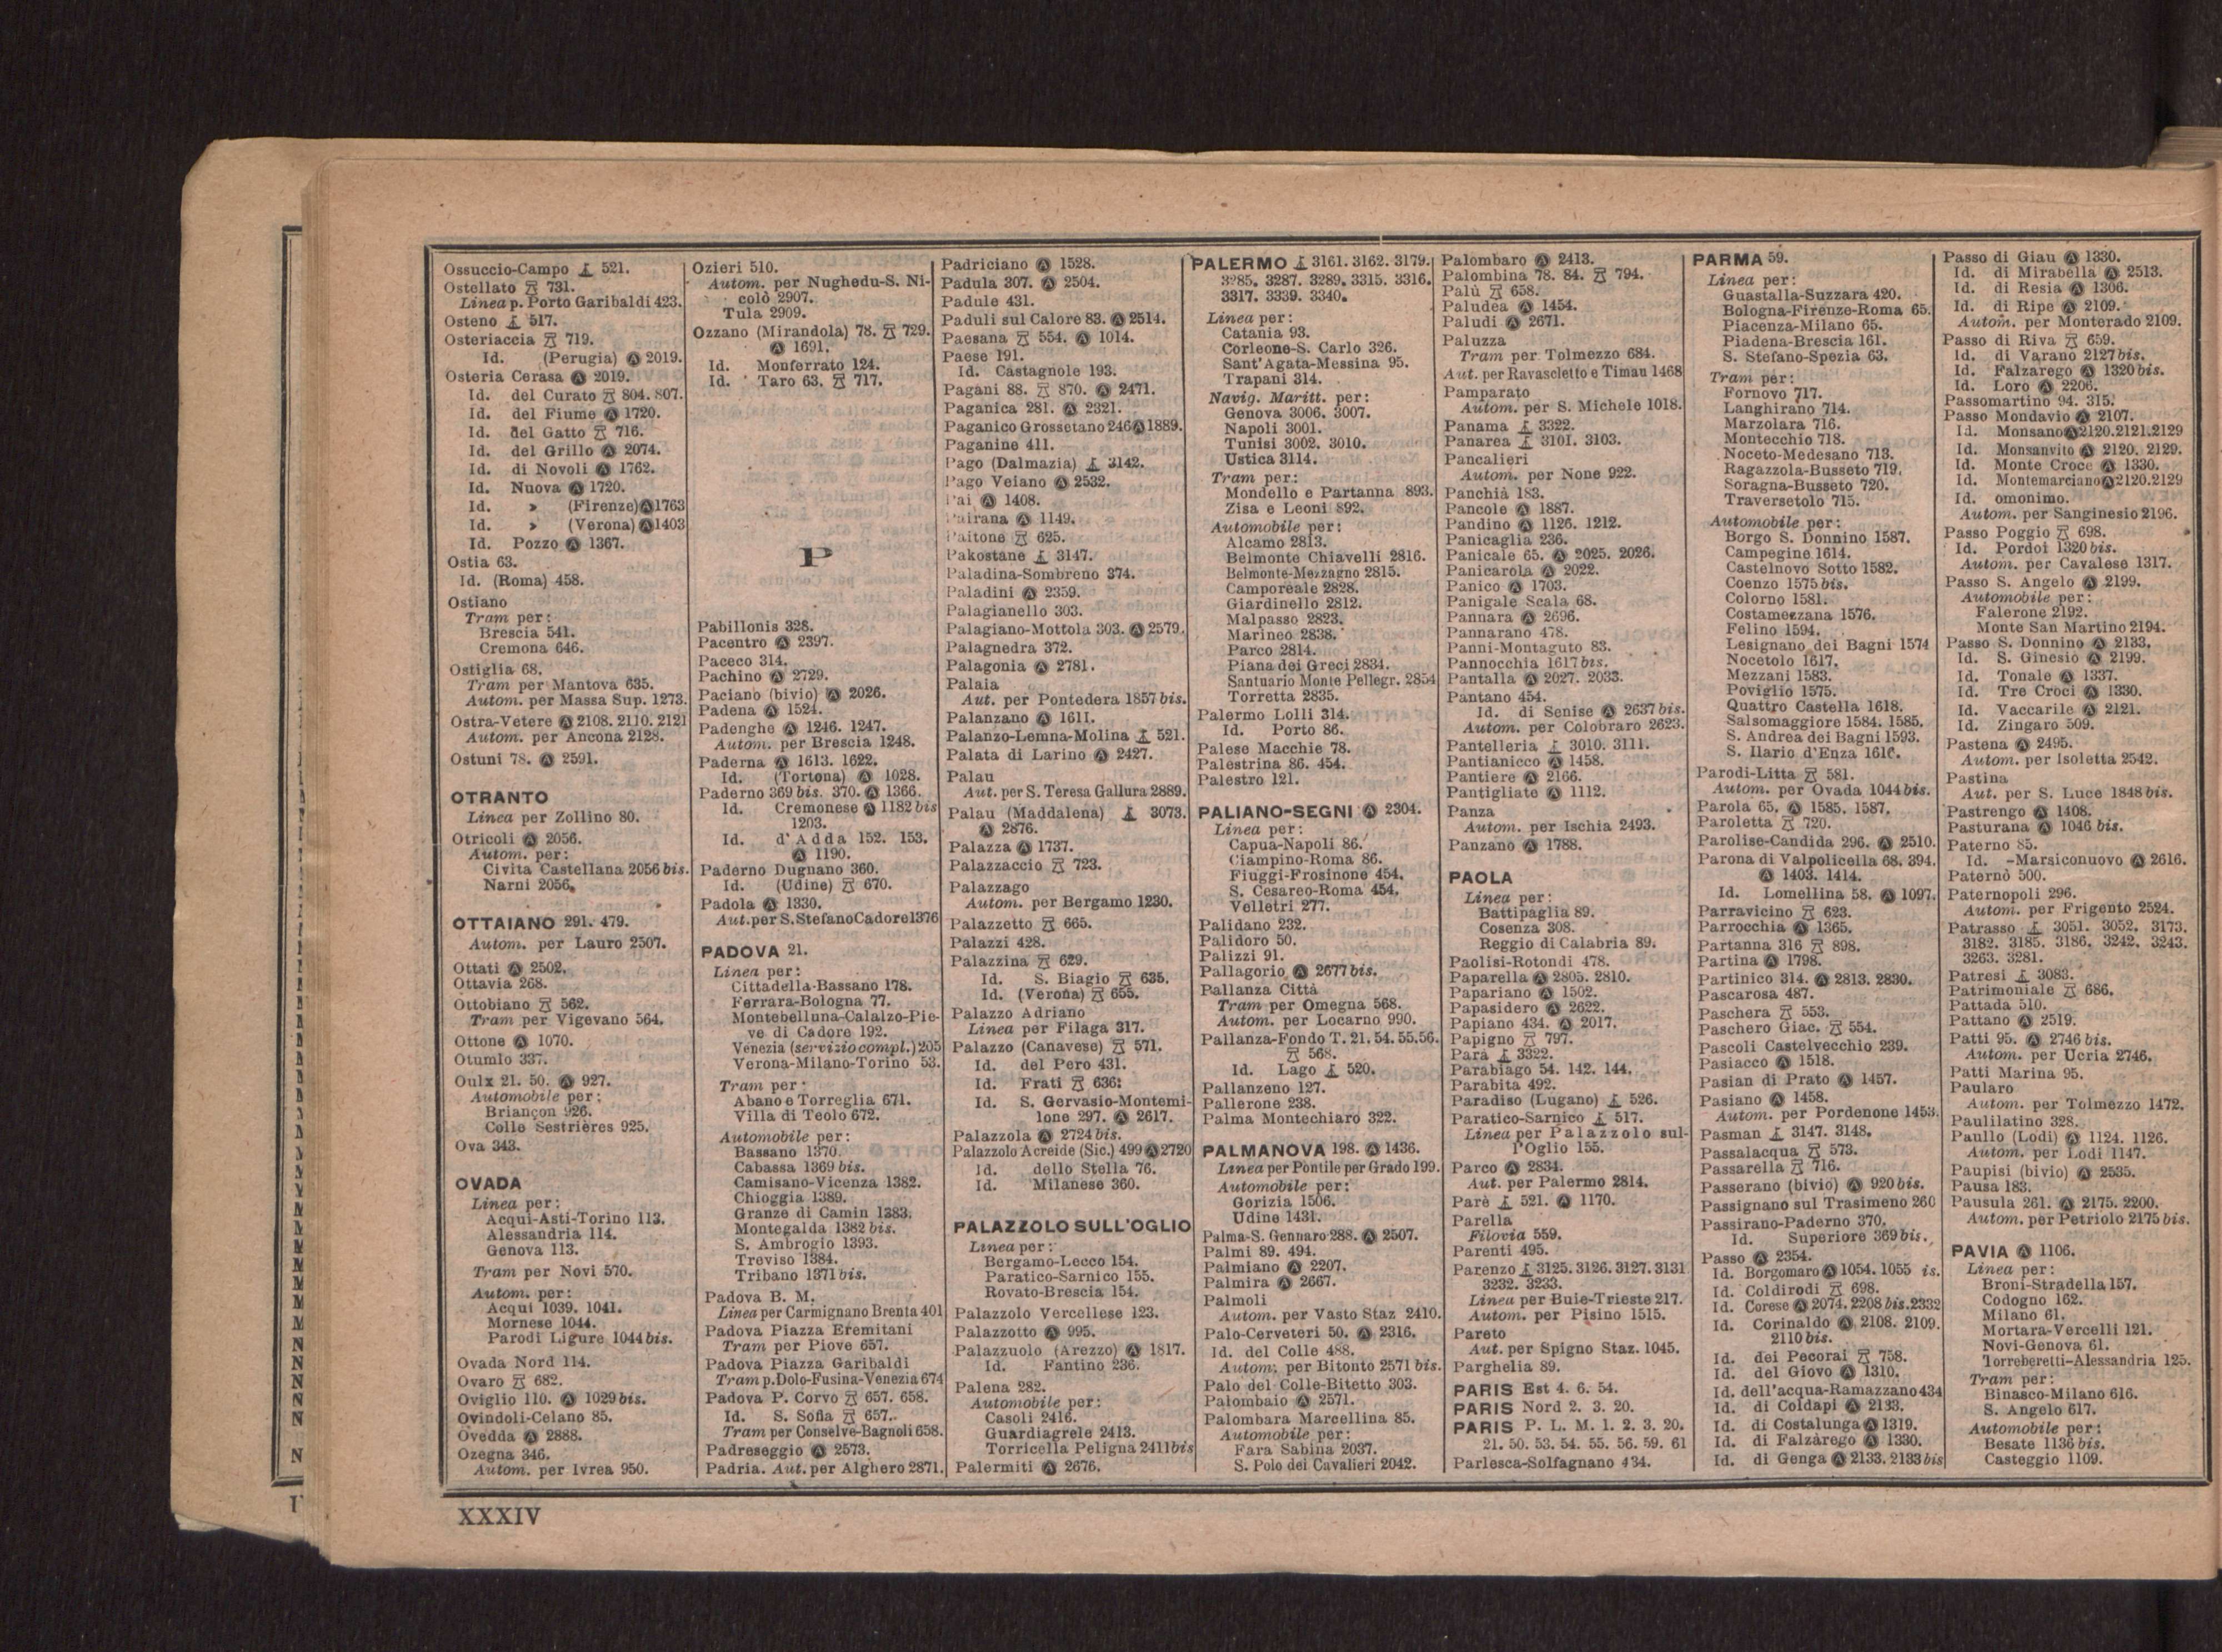 Ossuccio-Campo 521.
Ostellato 731.
Linea p. Porto Garibaldi 423.
Osteno 517.
Osteriaccia 719.
Id. (Perugia) Ⓐ 2019.
Osteria Cerasa Ⓐ 2019.
Id. del Curato 804. 807.
Id. del Fiume Ⓐ 1720.
Id. del Gatto 716.
Id. del Grillo Ⓐ 2074.
Id. di Novoli Ⓐ 1762.
Id. Nuova Ⓐ 1720.
Id. » (Firenze) Ⓐ 1763
Id. » (Verona) Ⓐ 1403
Id. Pozzo Ⓐ 1367.
Ostia 63.
Id. (Roma) 458.
Ostiano
Tram per:
Brescia 541.
Cremona 646.
Ostiglia 68.
Tram per Mantova 635.
Autom. per Massa Sup. 1273.
Ostra-Vetere Ⓐ 2108. 2110. 2121
Autom. per Ancona 2128.
Ostuni 78. Ⓐ 2591.
OTRANTO
Linea per Zollino 80.
Otricoli Ⓐ 2056.
Autom. per:
Civita Castellana 2056 bis.
Narni 2056.
OTTAIANO 291. 479.
Autom. per Lauro 2507.
Ottati Ⓐ 2502.
Ottavia 268.
Ottobiano 562.
Tram per Vigevano 564.
Ottone Ⓐ 1070.
Otumlo 337.
Oulx 21. 50. Ⓐ 927.
Automobile per:
Briançon 926.
Colle Sestrières 925.
Ova 343.
OVADA
Linea per:
Acqui-Asti-Torino 113.
Alessandria 114.
Genova 113.
Tram per Novi 570.
Autom. per:
Acqui 1039. 1041.
Mornese 1044.
Parodi Ligure 1044 bis.
Ovada Nord 114.
Ovaro 682.
Oviglio 110. Ⓐ 1029 bis.
Ovindoli-Celano 85.
Ovedda Ⓐ 2888.
Ozegna 346.
Autom. per Ivrea 950.
Ozieri 510.
Autom. per Nughedu-S. Ni-
colò 2907.
Tula 2909.
Ozzano (Mirandola) 78. 729.
Ⓐ 1691.
Id. Monferrato 124.
Id. Taro 63. 717.
P
Pabillonis 328.
Pacentro Ⓐ 2397.
Paceco 314.
Pachino Ⓐ 2729.
Paciano (bivio) Ⓐ 2026.
Padena Ⓐ 1524.
Padenghe Ⓐ 1246. 1247.
Autom. per Brescia 1248.
Paderna Ⓐ 1613. 1622.
Id. (Tortona) Ⓐ 1028.
Paderno 369 bis. 370. Ⓐ 1366.
Id. Cremonese Ⓐ 1182 bis
1203.
Id. d'Adda 152. 153.
Ⓐ 1190.
Paderno Dugnano 360.
Id. (Udine) 670.
Padola Ⓐ 1330.
Aut. per S. Stefano Cadore 1376
PADOVA 21.
Linea per:
Cittadella-Bassano 178.
Ferrara-Bologna 77.
Montebelluna-Calalzo-Pie-
ve di Cadore 192.
Venezia (servizio compl.) 205
Verona-Milano-Torino 53.
Tram per:
Abano e Torreglia 671.
Villa di Teolo 672.
Automobile per:
Bassano 1370.
Cabassa 1369 bis.
Camisano-Vicenza 1382.
Chioggia 1389.
Granze di Camin 1383.
Montegalda 1382 bis.
S. Ambrogio 1393.
Treviso 1384.
Tribano 1371 bis.
Padova B. M.
Linea per Carmignano Brenta 401
Padova Piazza Eremitani
Tram per Piove 657.
Padova Piazza Garibaldi
Tram p. Dolo-Fusina-Venezia 674
Padova P. Corvo 657. 658.
Id. S. Sofia 657.
Tram per Conselve-Bagnoli 658.
Padreseggio Ⓐ 2573.
Padria. Aut. per Alghero 2871.
Padriciano Ⓐ 1528.
Padula 307. Ⓐ 2504.
Padule 431.
Paduli sul Calore 83. Ⓐ 2514.
Paesana 554. Ⓐ 1014.
Paese 191.
Id. Castagnole 193.
Pagani 88. 870. Ⓐ 2471.
Paganica 281. Ⓐ 2321.
Paganico Grossetano 246 Ⓐ 1889.
Paganine 411.
Pago (Dalmazia) 3142.
Pago Veiano Ⓐ 2532.
Pai Ⓐ 1408.
Pairana Ⓐ 1149.
Paitone 625.
Pakostane 3147.
Paladina-Sombreno 374.
Paladini Ⓐ 2359.
Palagianello 303.
Palagiano-Mottola 303. Ⓐ 2579.
Palagnedra 372.
Palagonia Ⓐ 2781.
Palaia
Aut. per Pontedera 1857 bis.
Palanzano Ⓐ 1611.
Palanzo-Lemna-Molina 521.
Palata di Larino Ⓐ 2427.
Palau
Aut. per S. Teresa Gallura 2889.
Palau (Maddalena) 3073.
Ⓐ 2876.
Palazza Ⓐ 1737.
Palazzaccio 723.
Palazzago
Autom. per Bergamo 1230.
Palazzetto 665.
Palazzi 428.
Palazzina 629.
Id. S. Biagio 635.
Id. (Verona) 655.
Palazzo Adriano
Linea per Filaga 317.
Palazzo (Canavese) 571.
Id. del Pero 431.
Id. Frati 636.
Id. S. Gervasio-Montemi-
lone 297. Ⓐ 2617.
Palazzola Ⓐ 2724 bis.
Palazzolo Acreide (Sic.) 499 Ⓐ 2720
Id. dello Stella 76.
Id. Milanese 360.
PALAZZOLO SULL'OGLIO
Linea per:
Bergamo-Lecco 154.
Paratico-Sarnico 155.
Rovato-Brescia 154.
Palazzolo Vercellese 123.
Palazzotto Ⓐ 995.
Palazzuolo (Arezzo) Ⓐ 1817.
Id. Fantino 236.
Palena 282.
Automobile per:
Casoli 2416.
Guardiagrele 2413.
Torricella Peligna 2411 bis
Palermiti Ⓐ 2676.
PALERMO 3161. 3162. 3179.
3285. 3287. 3289. 3315. 3316.
3317. 3339. 3340.
Linea per:
Catania 93.
Corleone-S. Carlo 326.
Sant'Agata-Messina 95.
Trapani 314.
Navig. Maritt. per:
Genova 3006. 3007.
Napoli 3001.
Tunisi 3002. 3010.
Ustica 3114.
Tram per:
Mondello e Partanna 893.
Zisa e Leoni 892.
Automobile per:
Alcamo 2813.
Belmonte Chiavelli 2816.
Belmonte-Mezzagno 2815.
Camporeale 2828.
Giardinello 2812.
Malpasso 2823.
Marineo 2838.
Parco 2814.
Piana dei Greci 2834.
Santuario Monte Pellegr. 2854
Torretta 2835.
Palermo Lolli 314.
Id. Porto 86.
Palese Macchie 78.
Palestrina 86. 454.
Palestro 121.
PALIANO-SEGNI Ⓐ 2304.
Linea per:
Capua-Napoli 86.
Ciampino-Roma 86.
Fiuggi-Frosinone 454.
S. Cesareo-Roma 454.
Velletri 277.
Palidano 232.
Palidoro 50.
Palizzi 91.
Pallagorio Ⓐ 2677 bis.
Pallanza Città
Tram per Omegna 568.
Autom. per Locarno 990.
Pallanza-Fondo T. 21. 54. 55. 56.
568.
Id. Lago 520.
Pallanzeno 127.
Pallerone 238.
Palma Montechiaro 322.
PALMANOVA 198. Ⓐ 1436.
Linea per Pontile per Grado 199.
Automobile per:
Gorizia 1506.
Udine 1431.
Palma-S. Gennaro 288. Ⓐ 2507.
Palmi 89. 494.
Palmiano Ⓐ 2207.
Palmira Ⓐ 2667.
Palmoli
Autom. per Vasto Staz 2410.
Palo-Cerveteri 50. Ⓐ 2316.
Id. del Colle 488.
Autom. per Bitonto 2571 bis.
Palo del Colle-Bitetto 303.
Palombaio Ⓐ 2571.
Palombara Marcellina 85.
Automobile per:
Fara Sabina 2037.
S. Polo dei Cavalieri 2042.
Palombaro Ⓐ 2413.
Palombina 78. 84. 794.
Palù 658.
Paludea Ⓐ 1454.
Paludi Ⓐ 2671.
Paluzza
Tram per Tolmezzo 684.
Aut. per Ravascletto e Timau 1468
Pamparato
Autom. per S. Michele 1018.
Panama 3322.
Panarea 3101. 3103.
Pancalieri
Autom. per None 922.
Panchià 183.
Pancole Ⓐ 1887.
Pandino Ⓐ 1126. 1212.
Panicaglia 236.
Panicale 65. Ⓐ 2025. 2026.
Panicarola Ⓐ 2022.
Panico Ⓐ 1703.
Panigale Scala 68.
Pannara Ⓐ 2696.
Pannarano 478.
Panni-Montaguto 83.
Pannocchia 1617 bis.
Pantalla Ⓐ 2027. 2033.
Pantano 454.
Id. di Senise Ⓐ 2637 bis.
Autom. per Colobraro 2623.
Pantelleria 3010. 3111.
Pantianicco Ⓐ 1458.
Pantiere Ⓐ 2166.
Pantigliate Ⓐ 1112.
Panza
Autom. per Ischia 2493.
Panzano Ⓐ 1788.
PAOLA
Linea per:
Battipaglia 89.
Cosenza 308.
Reggio di Calabria 89.
Paolisi-Rotondi 478.
Paparella Ⓐ 2805. 2810.
Papariano Ⓐ 1502.
Papasidero Ⓐ 2622.
Papiano 434. Ⓐ 2017.
Papigno 797.
Parà 3322.
Parabiago 54. 142. 144.
Parabita 492.
Paradiso (Lugano) 526.
Paratico-Sarnico 517.
Linea per Palazzolo sul-
l'Oglio 155.
Parco Ⓐ 2834.
Aut. per Palermo 2814.
Parè 521. Ⓐ 1170.
Parella
Filovia 559.
Parenti 495.
Parenzo 3125. 3126. 3127. 3131
3232. 3233.
Linea per Buie-Trieste 217.
Autom. per Pisino 1515.
Pareto
Aut. per Spigno Staz. 1045.
Parghelia 89.
PARIS Est 4. 6. 54.
PARIS Nord 2. 3. 20.
PARIS P. L. M. 1. 2. 3. 20.
21. 50. 53. 54. 55. 56. 59. 61
Parlesca-Solfagnano 434.
PARMA 59.
Linea per:
Guastalla-Suzzara 420.
Bologna-Firenze-Roma 65.
Piacenza-Milano 65.
Piadena-Brescia 161.
S. Stefano-Spezia 63.
Tram per:
Fornovo 717.
Langhirano 714.
Marzolara 716.
Montecchio 718.
Noceto-Medesano 713.
Ragazzola-Busseto 719.
Soragna-Busseto 720.
Traversetolo 715.
Automobile per:
Borgo S. Donnino 1587.
Campegine 1614.
Castelnovo Sotto 1582.
Coenzo 1575 bis.
Colorno 1581.
Costamezzana 1576.
Felino 1594.
Lesignano dei Bagni 1574
Nocetolo 1617.
Mezzani 1583.
Poviglio 1575.
Quattro Castella 1618.
Salsomaggiore 1584. 1585.
S. Andrea dei Bagni 1593.
S. Ilario d'Enza 1616.
Parodi-Litta 581.
Autom. per Ovada 1044 bis.
Parola 65. Ⓐ 1585. 1587.
Paroletta 720.
Parolise-Candida 296. Ⓐ 2510.
Parona di Valpolicella 68. 394.
Ⓐ 1403. 1414.
Id. Lomellina 58. Ⓐ 1097.
Parravicino 623.
Parrocchia Ⓐ 1365.
Partanna 316 898.
Partina Ⓐ 1798.
Partinico 314. Ⓐ 2813. 2830.
Pascarosa 487.
Paschera 553.
Paschero Giac. 554.
Pascoli Castelvecchio 239.
Pasiacco Ⓐ 1518.
Pasian di Prato Ⓐ 1457.
Pasiano Ⓐ 1458.
Autom. per Pordenone 1453.
Pasman 3147. 3148.
Passalacqua 573.
Passarella 716.
Passerano (bivio) Ⓐ 920 bis.
Passignano sul Trasimeno 260
Passirano-Paderno 370.
Id. Superiore 369 bis.
Passo Ⓐ 2354.
Id. Borgomaro Ⓐ 1054. 1055 is.
Id. Coldirodi 698.
Id. Corese Ⓐ 2074. 2208 bis. 2332
Id. Corinaldo Ⓐ 2108. 2109.
2110 bis.
Id. dei Pecorai 758.
Id. del Giovo Ⓐ 1310.
Id. dell'acqua-Ramazzano 434
Id. di Coldapi Ⓐ 2133.
Id. di Costalunga Ⓐ 1319.
Id. di Falzàrego Ⓐ 1330.
Id. di Genga Ⓐ 2133. 2133 bis
Passo di Giau Ⓐ 1330.
Id. di Mirabella Ⓐ 2513.
Id. di Resia Ⓐ 1306.
Id. di Ripe Ⓐ 2109.
Autom. per Monterado 2109.
Passo di Riva 659.
Id. di Varano 2127 bis.
Id. Falzarego Ⓐ 1320 bis.
Id. Loro Ⓐ 2206.
Passomartino 94. 315.
Passo Mondavio Ⓐ 2107.
Id. Monsano Ⓐ 2120. 2121. 2129
Id. Monsanvito Ⓐ 2120. 2129.
Id. Monte Croce Ⓐ 1330.
Id. Montemarciano Ⓐ 2120. 2129
Id. omonimo.
Autom. per Sanginesio 2196.
Passo Poggio 698.
Id. Pordoi 1320 bis.
Autom. per Cavalese 1317.
Passo S. Angelo Ⓐ 2199.
Automobile per:
Falerone 2192.
Monte San Martino 2194.
Passo S. Donnino Ⓐ 2133.
Id. S. Ginesio Ⓐ 2199.
Id. Tonale Ⓐ 1337.
Id. Tre Croci Ⓐ 1330.
Id. Vaccarile Ⓐ 2121.
Id. Zingaro 509.
Pastena Ⓐ 2495.
Autom. per Isoletta 2542.
Pastina
Aut. per S. Luce 1848 bis.
Pastrengo Ⓐ 1408.
Pasturana Ⓐ 1046 bis.
Paterno 85.
Id. -Marsiconuovo Ⓐ 2616.
Paternò 500.
Paternopoli 296.
Autom. per Frigento 2524.
Patrasso 3051. 3052. 3173.
3182. 3185. 3186. 3242. 3243.
3263. 3281.
Patresi 3083.
Patrimoniale 686.
Pattada 510.
Pattano Ⓐ 2519.
Patti 95. Ⓐ 2746 bis.
Autom. per Ucria 2746.
Patti Marina 95.
Paularo
Autom. per Tolmezzo 1472.
Paulilatino 328.
Paullo (Lodi) Ⓐ 1124. 1126.
Autom. per Lodi 1147.
Paupisi (bivio) Ⓐ 2535.
Pausa 183.
Pausula 261. Ⓐ 2175. 2200.
Autom. per Petriolo 2175 bis.
PAVIA Ⓐ 1106.
Linea per:
Broni-Stradella 157.
Codogno 162.
Milano 61.
Mortara-Vercelli 121.
Novi-Genova 61.
Torreberetti-Alessandria 125.
Tram per:
Binasco-Milano 616.
S. Angelo 617.
Automobile per:
Besate 1136 bis.
Casteggio 1109.
XXXIV